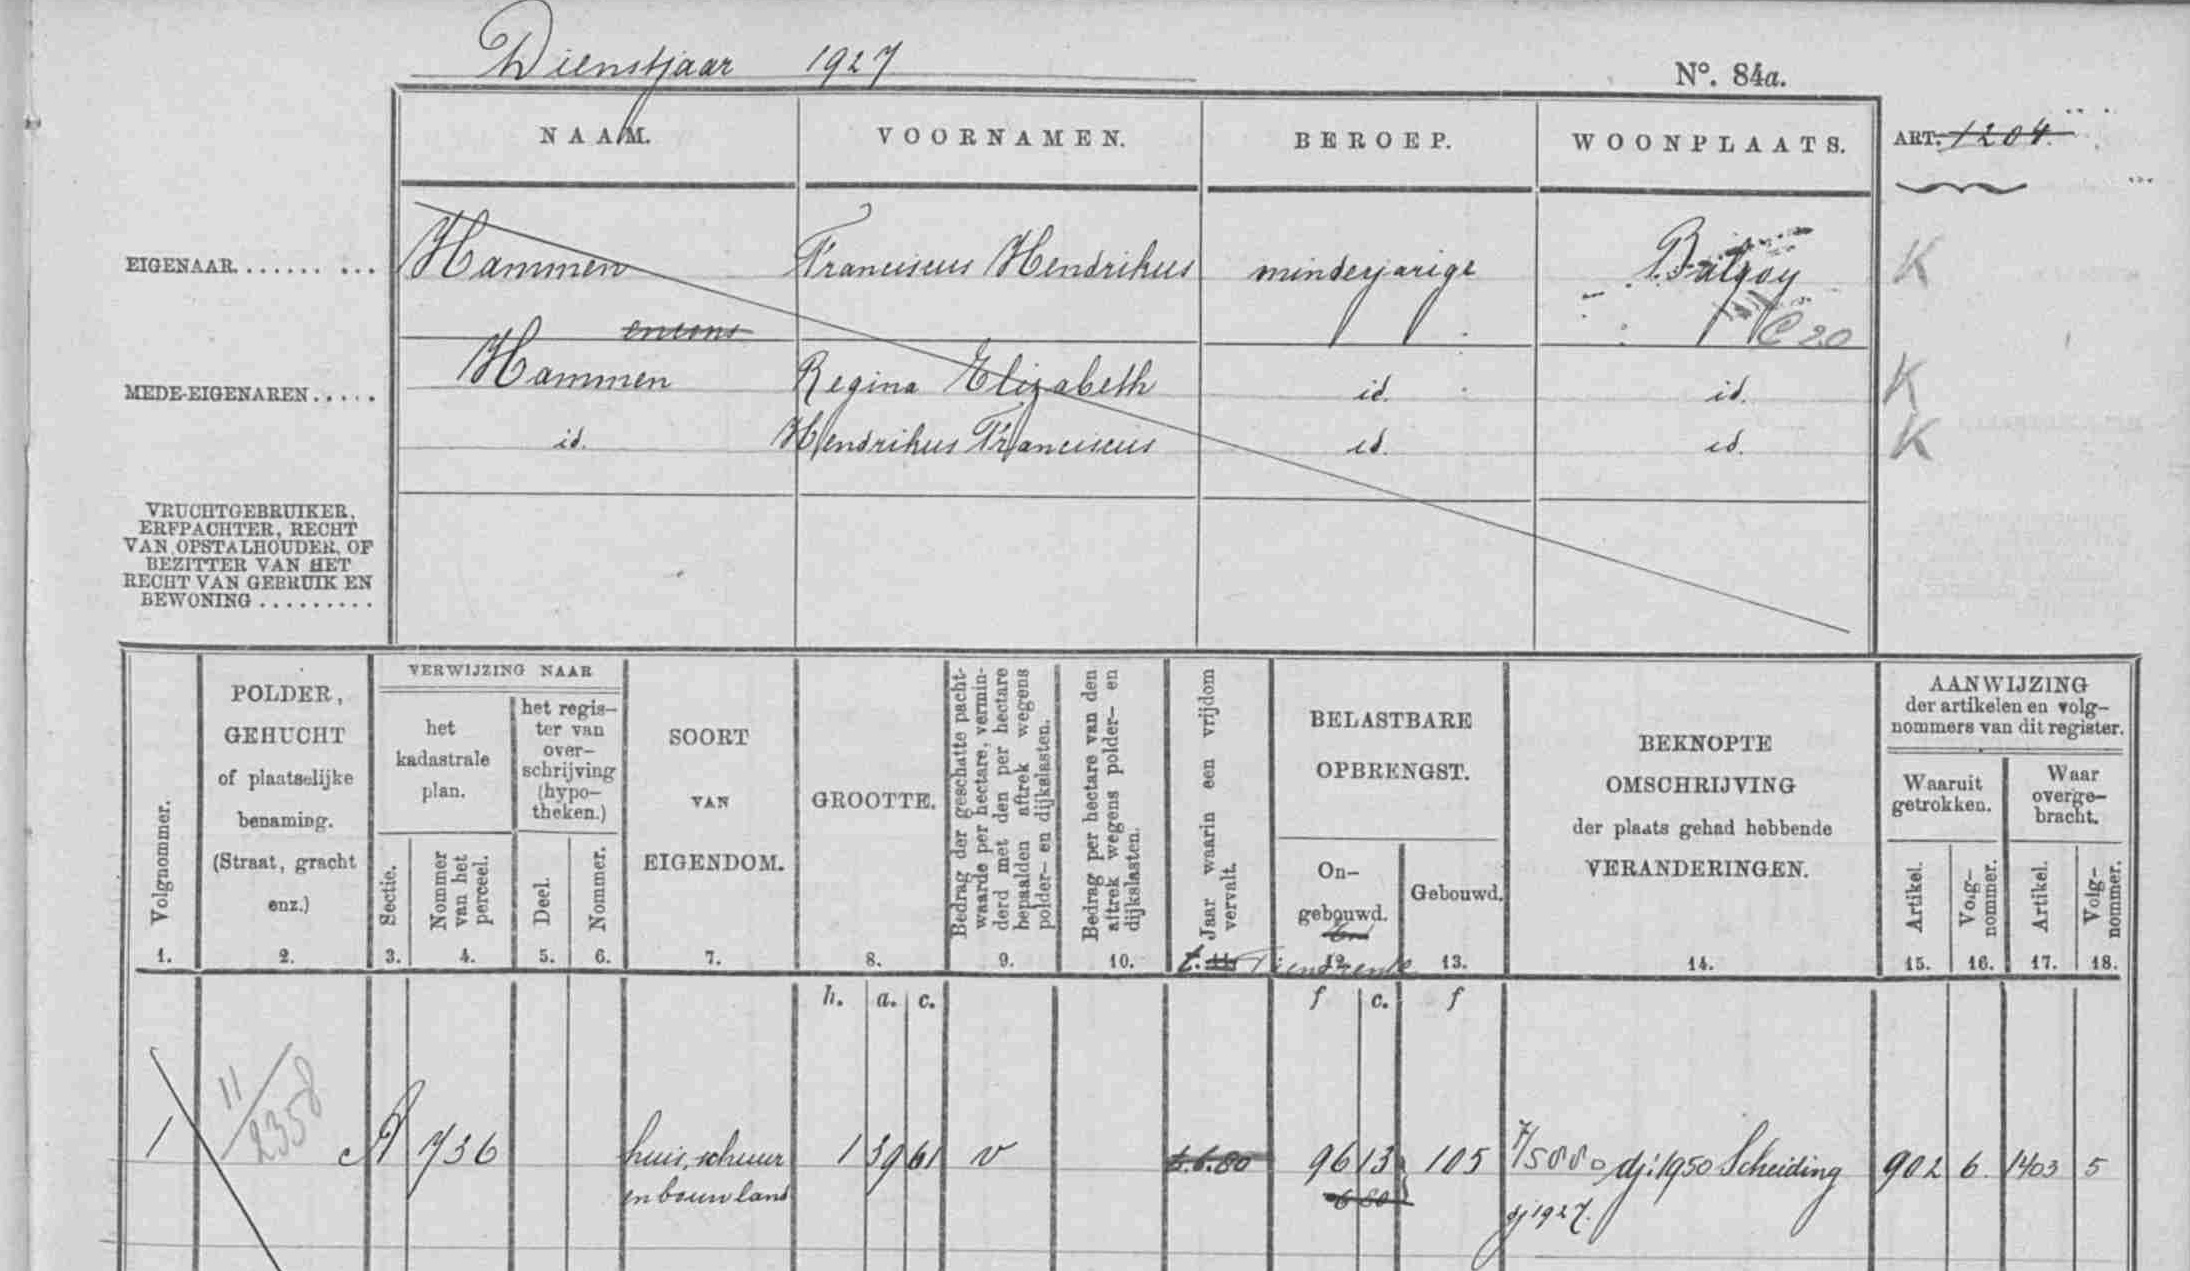 Dienstjaar 1927
N°. 84a.
NAAM. VOORNAMEN. BEROEP. WOONPLAATS. ART. 1204.
EIGENAAR......... Hammen Franciscus Hendrikus minderjarige Balgoy K
encons C 20
MEDE-EIGENAREN..... Hammen Regina Elizabeth id. id. K
id. Hendrikus Franciscus id. id. K
VRUCHTGEBRUIKER,
ERFPACHTER, RECHT
VAN OPSTALHOUDER, OF
BEZITTER VAN HET
RECHT VAN GEBRUIK EN
BEWONING.........
Volgnommer.
1.
POLDER,
GEHUCHT
of plaatselijke
benaming.
(Straat, gracht
enz.)
2.
VERWIJZING NAAR
het
kadastrale
plan.
Sectie.
3.
Nommer
van het
perceel.
4.
het regis-
ter van
over-
schrijving
(hypo-
theken.)
Deel.
5.
Nommer.
6.
SOORT
VAN
EIGENDOM.
7.
GROOTTE.
8.
Bedrag der geschatte pacht-
waarde per hectare, vermin-
derd met den per hectare
bepaalden aftrek wegens
polder- en dijkslasten.
9.
Bedrag per hectare van den
aftrek wegens polder- en
dijkslasten.
10.
Jaar waarin een vrijdom
vervalt.
BELASTBARE
OPBRENGST.
On-
gebouwd.
12.
Gebouwd.
13.
Tiendrente
BEKNOPTE
OMSCHRIJVING
der plaats gehad hebbende
VERANDERINGEN.
14.
AANWIJZING
der artikelen en volg-
nommers van dit register.
Waaruit
getrokken.
Artikel.
15.
Volg-
nommer.
16.
Waar
overge-
bracht.
Artikel.
17.
Volg-
nommer.
18.
h. a. c. f c. f
11/2358
1 A 736 huis, schuur 1 39 61 v 6.80 96 13 105 7/5880 dj: 1950 Scheiding 902 6. 1403 5
en bouwland 6 80 dj 1927.